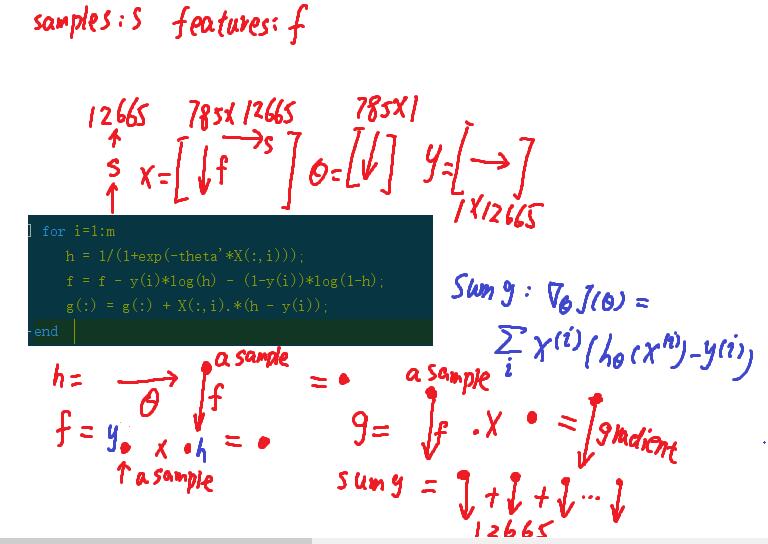 samples: s features: f
12665 785x12665 785x1
s X=[ f s ] θ=[ ] y=[ ]
1x12665
for i=1:m
h = 1/(1+exp(-theta'*X(:,i)));
f = f - y(i)*log(h) - (1-y(i))*log(1-h);
g(:) = g(:) + X(:,i).*(h - y(i));
end
sum g: ∇θ J(θ) =
∑i x(i)(hθ(x(i))-y(i))
h= θ a sample f = •
f = y • x • h = •
a sample
a sample
g= f . x • = gradient
sum g = + + ...
12665